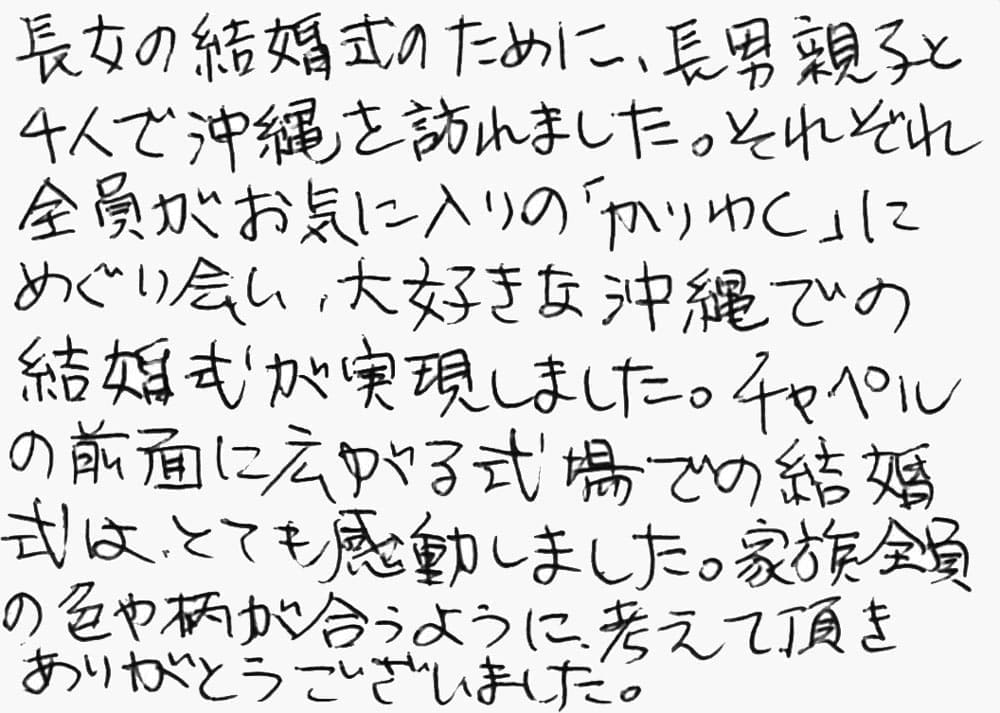 長女の結婚式のために、長男親子と
4人で沖縄を訪れました。それぞれ
全員がお気に入りの「かりゆし」に
めぐり会い、大好きな沖縄での
結婚式が実現しました。チャペル
の前面に広がる式場での結婚
式は、とても感動しました。家族全員
の色や柄が合うように、考えて頂き
ありがとうございました。